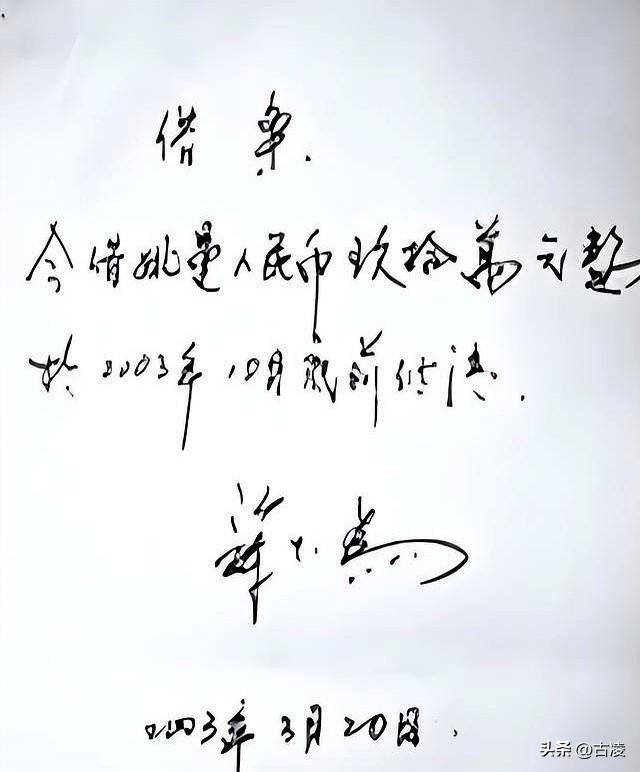 借条.
今借姚人民币玖拾萬元整
於2003年10月底前付清.
2003年3月20日.
头条 @古凌